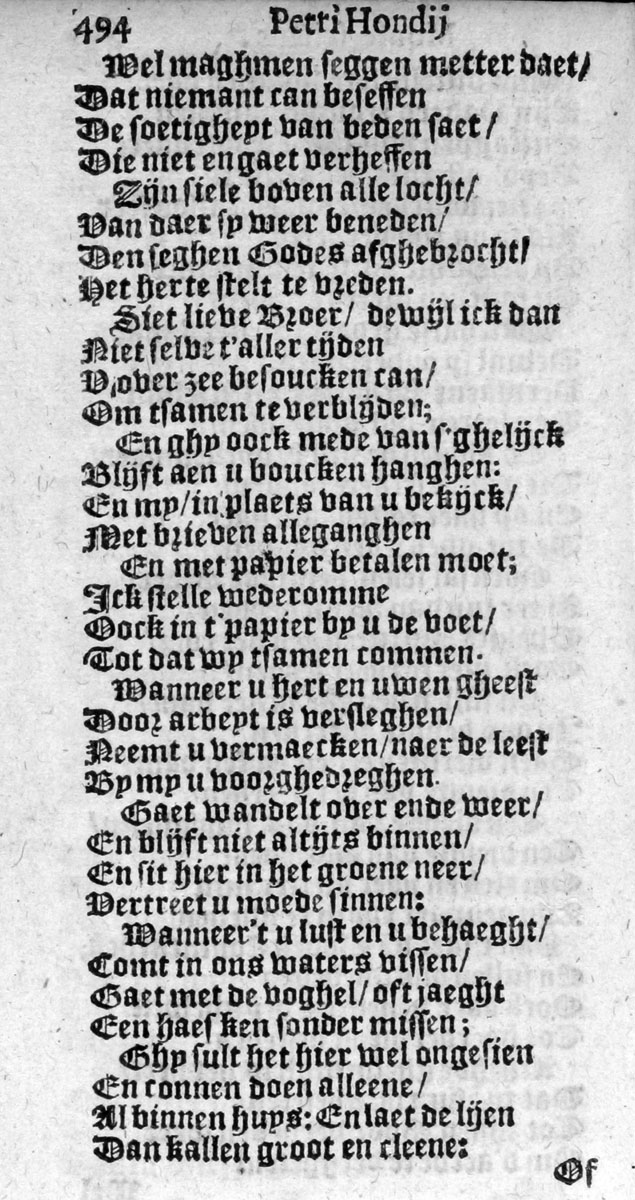 494 Petri Hondij
Wel maghmen seggen metter daet/
Dat niemant can beseffen
De soetigheyt van beden saet/
Die niet en gaet verheffen
Zijn siele boven alle locht/
Van daer sy weer beneden/
Den seghen Godes afghebrocht/
Het herte stelt te vreden.
Siet lieve Broer/ dewijl ick dan
Niet selve t'aller tijden
V, over zee besoucken can/
Om tsamen te verblijden;
En ghy oock mede van s'ghelijck
Blijft aen u boucken hanghen:
En my/ in plaets van u bekijck/
Met brieven alleganghen
En met papier betalen moet;
Ick stelle wederomme
Oock in t'papier by u de voet/
Tot dat wy tsamen commen.
Wanneer u hert en uwen gheest
Door arbeyt is versleghen/
Neemt u vermaecken/ naer de leest
By my u voorghedreghen.
Gaet wandelt over ende weer/
En blijft niet altijts binnen/
En sit hier in het groene neer/
Vertreet u moede sinnen:
Wanneer't u lust en u behaeght/
Comt in ons waters vissen/
Gaet met de voghel/ oft jaeght
Een haesken sonder missen;
Ghy sult het hier wel ongesien
En connen doen alleene/
Al binnen huys: En laet de lijen
Dan kallen groot en cleene:
Of